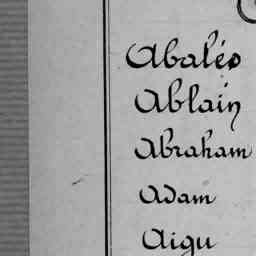 Abaléo
Ablain
Abraham
Adam
Aigu